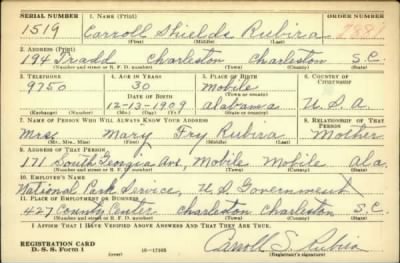 SERIAL NUMBER 1. NAME (Print) ORDER NUMBER
1519 Carroll Shields Rubira
(First) (Middle) (Last)
2. ADDRESS (Print)
194 Tradd Charleston Charleston S.C.
(Number and street or R. F. D. number) (Town) (County) (State)
3. TELEPHONE 4. AGE IN YEARS 5. PLACE OF BIRTH 6. COUNTRY OF CITIZENSHIP
9750 30 Mobile
DATE OF BIRTH (Town or county)
12-13-1909 Alabama U.S.A
(Exchange) (Number) (Mo.) (Day) (Yr.) (State or country)
7. NAME OF PERSON WHO WILL ALWAYS KNOW YOUR ADDRESS 8. RELATIONSHIP OF THAT PERSON
Mrs. Mary Fry Rubira Mother
(Mr., Mrs., Miss) (First) (Middle) (Last)
9. ADDRESS OF THAT PERSON
171 South Georgia Ave, Mobile Mobile Ala
(Number and street or R. F. D. number) (Town) (County) (State)
10. EMPLOYER'S NAME
National Park Service, U.S. Government
11. PLACE OF EMPLOYMENT OR BUSINESS
427 County Center Charleston Charleston S.C.
(Number and street or R. F. D. number) (Town) (County) (State)
I AFFIRM THAT I HAVE VERIFIED ABOVE ANSWERS AND THAT THEY ARE TRUE.
REGISTRATION CARD
D. S. S. Form 1 (over) Carroll S. Rubira
(Registrant's signature)